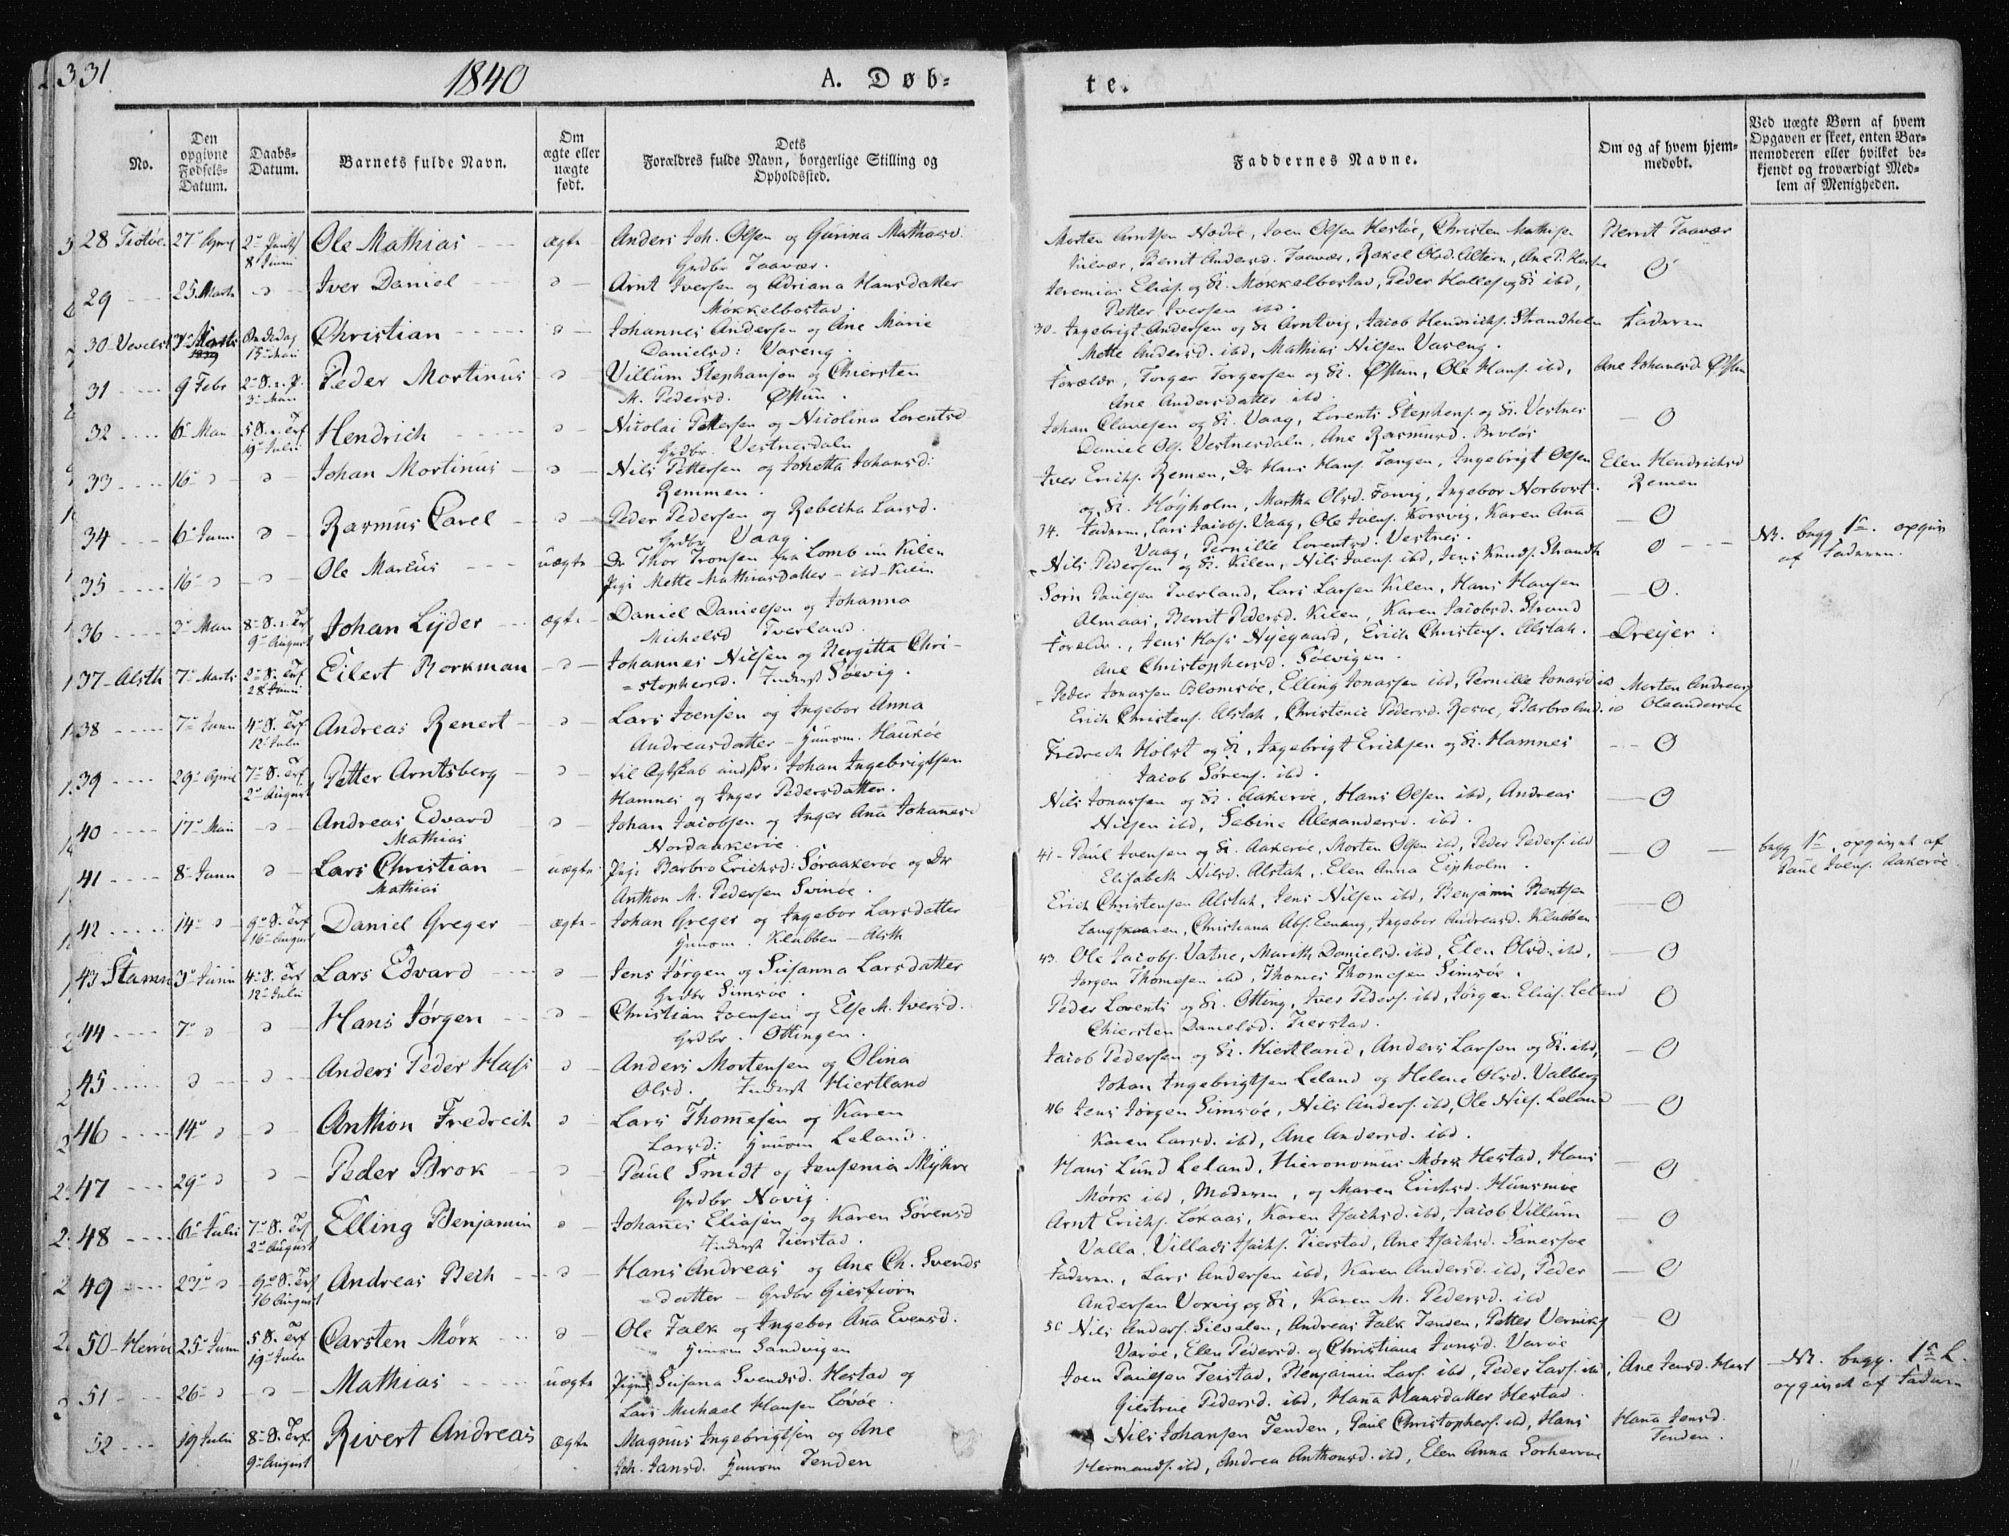 331
1840
A. Døb-
te.
No.
Den opgivne Fødsels-Datum.
Daabs-Datum.
Barnets fulde Navn.
Om ægte eller uægte født.
Dets Forældres fulde Navn, borgerlige Stilling og Opholdssted.
Faddernes Navne.
Om og af hvem hjemmedøbt.
Ved uægte Børn af hvem Opgaven er skeet, enten Barnemoderen eller hvilket bekjendt og troværdigt Medlem af Menigheden.
28 Tiøtøe 27 April 8 Juni Ole Mathias ægte Anders Joh. Olsen og Gurina Mathiasd.
Grdbr Taavær.
Morten Arntsen Hodøe, Joen Olsen Hestøe, Christen Mathisen
Berrit Andersd. Taavær, Rakel Olsd. Altern, Ane P. Hestøe
Berrit Taavær
29 25 Marts Iver Daniel Arnt Iversen og Adriana Hansdatter
Møkkelbostad.
Jeremias Eliass. og K. Møkkelbostad, Peder Halles. og K. ibd,
Petter Iversen ibd
0
30 Vevelst 7 Marts 1839 15 Mai Christian Johannes Andersen og Ane Marie
Danielsd: Vaseng.
30 Ingebrigt Andersen og K. Arntvig, Jacob Hendrichs. Strandholm
Mette Andersd. ibd, Mathias Nilsen Vaseng.
Faderen
31 9 Febr 3 Mai Peder Mortinus Villum Stephansen og Chiersten
M. Pedersd. Østun.
Forældr, Torger Torgersen og K. Østun, Ole Hans. ibd,
Ane Andersdatter ibd.
Ane Johanesd. Østun
32 6 Mai 5 S. e. Trf 19 Julii Hendrich Nicolai Pettersen og Nicolina Lorentsd
Grdbr. Vestnesdaln
Johan Clavesen og K. Vaag, Lorents Stephens. og K. Vestnes
Daniel Ols. Vestnesdaln, Ane Rasmusd.
0
33 16 Johan Mortinus Nils Pettersen og Johetta Johansd:
Remmen.
Iver Erichs. Remen, Dr Hans Hans. Tangen, Ingebrigt Olsen
og K. Høyholm, Martha Olsd. Forvig, Ingebor
Elen Hendrichsd
Remen
34 6 Juni Rasmus Carel Peder Pedersen og Rebecka Larsd.
Grdbr Vaag.
34. Faderen, Lars Jacobs. Vaag, Ole Joens. Korsvig, Karen Aña
Vaag, Pernille Lorentsd. Vestnes.
0
35 16 Ole Marcus uægte Dr Thor Tronsen fra Lomb nu Kilen
Pige Mette Mathiasdatter ibd Kilen
Nils Pedersen og K. Kilen, Nils Joens. ibd, Jens Knuds. Strand
0
NB. begg 1ste opgivn
af Faderen.
36 3 Mai 8 S. e. Trf 9 August Johan Lÿder ægte Daniel Danielsen og Johanna
Michelsd Tverland.
Sørn Paulsen Tverland, Lars Larsen Kilen, Hans Hansen
Almaas, Berrit Pedersd. Kilen, Karen Jacobsd. Strand
0.
37 Alsth 7 Marts 2 S. Trf 28 Juni Eilert Borkman Johannes Nilsen og Bergitta Chri-
stophersd. Inderst Søevig.
Forældr., Jens Hass Nÿegaard, Erich Christens. Alstah.
Ane Christophersd. Søevigen.
Dreÿer.
38 7 Juni 4 S. Trf 12 Julii Andreas Renert Lars Joensen og Ingebor Anna
Andreasdatter Huusm. Haukøe
Peder Jonassen Blomsøe, Elling Jonassen ibd, Pernille Jonasd ib
Erich Christens. Alstah, Christence Pedersd. Rosøe, Barbro
Morten Andreas
Olaandersøe
39 29 April 7 S. Trf 2 August Petter Arntsberg til Ægtskab indskr. Johan Ingebrigtsen
Hamnes og Inger Pedersdatter.
Fredrech Holst og K, Ingebrigt Erichsen og K. Hamnes
Jacob Sørens. ibd.
0
40 17 Mai Andreas Edvard
Mathias
Johan Jacobsen og Inger Aña Johanesd
Nordaakerøe.
Nils Jonassen og K. Aakerøe, Hans Olsen ibd, Andreas
Nilsen ibd, Sebina Alexandersd. ibd.
0
41 8 Juni Lars Christian
Mathias
uægte Pige Barbro Erichsd: Søraakerøe og Dr
Anthon M. Pedersen Svinøe.
41 Paul Ivensen og K. Aakerøe, Morten Olsen ibd, Peder Peders. ibd
Elisabeth Nilsd. Alstah, Elen Anna Eipholm.
0
begg 1ste, opgivet af
Paul Joens. Aakerøe.
42 14 9 S. Trf 16 August Daniel Greger ægte Johan Greger og Ingebor Larsdatter
Huusm. Klubben Alsth
Erich Christensen Alstah, Jens Nilsen ibd, Benjamin Bentsen
Langskaaren, Christiana Abs. Eenang, Ingebor Andreasd. Klubben
0
43 Stamn 3 Juni 4 S. Trf 12 Julii Lars Edvard Jens Jørgen og Susanna Larsdatter
Grdbr Simsøe.
43. Ole Jacobs. Vatne, Marith Danielsd. ibd, Elen Olsd. ibd,
Jørgen Thomesen ibd, Thomes Thomesen Simsøe.
0
44 7 Hans Jørgen Christian Joensen og Else M. Iversd.
Grdbr. Ottingen
Peder Lorents og K. Otting, Iver Peders. ibd, Jørgen Elias. Leland
Chiersten Danielsd. Tierstad.
0
45 Anders Peder Hass Anders Mortensen og Olina
Olsd. Inderst Hiertland
Jacob Pedersen og K. Hiertland, Anders Larsen og K. ibd,
Johan Ingebrigtsen Leland og Helene Olsd. Valberg
0
46 14 Anthon Fredrech Lars Thomesen og Karen
Larsd: Huusm Leland.
46 Jens Jørgen Simsøe, Nils Anders. ibd, Ole Niels. Leland
Karen Larsd. ibd, Ane Andersd. ibd.
0
47 29 Peder Brok Paul Smidt og Jensenia Mÿhre
Grdbr Novig.
Hans Lund Leland, Hieronomus Mørk Hestad, Hans
Mørk ibd, Moderen, og Maren Erichsd. Hunsmoe
0
48 6 Julii 7 S. Trf 2 August Elling Benjamin Johañes Eliasen og Karen Sørensd
Inderst Tierstad.
Arnt Erichs. Løkaas, Karen Isachsd. ibd, Jacob Villum
Valla, Villads Isachs. Tierstad, Ane Isachsd. Sanessøe
0
49 23 9 S. Trf 16 August Andreas Bech Hans Andreas og Ane Ch. Svends
datter Grdbr Giesfiorn
Faderen, Lars Andersen ibd, Karen Andersd. ibd, Peder
Andersen Voxvig og K, Karen M. Pedersd. ibd
0
50 Herrøe 25 Juni 5 S. Trf 19 Julii Carsten Mørk Ole Falk og Ingebor Aña Evensd.
Huusm Sandvigen
50 Nils Anders. Silvalen, Andreas Falk Tenden, Petter Verniks
Varøe, Elen Pedersd. og Christiana Jonsd. Varøe
0
51 26 Mathias uægte Pigen Susana Svendsd. Hestad og
Lars Michael Hansen Løvøe.
Joen Paulsen Teistad, Benjamin Lars. ibd, Peder Lars. ibd,
Giertrue Pedersd. ibd, Hana Hansdatter Hestad.
Ane Jensd. Hest
NB. begg. 1ste L.
opgivet af Faderen
52 19 Julii 8 S. Trf. 9 August Rivert Andreas ægte Magnus Ingebrigtsen og Ane
Joh. Jansd. Huusm Tenden
Nils Johansen Tenden, Paul Christophers. ibd, Hans
Hermands. ibd, Andrea Anthonsd. ibd, Elen Anna Sørherrøe
Hana Jensd.
Tenden.